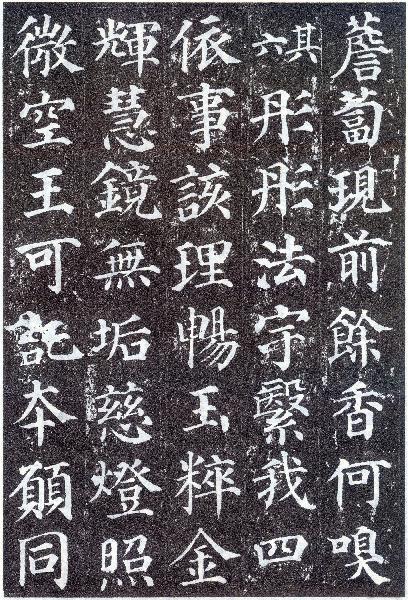 薝蔔現前餘香何嗅
其六彤彤法宇繄我四
依事該理暢玉粹金
輝慧鏡無垢慈燈照
微空王可託夲願同